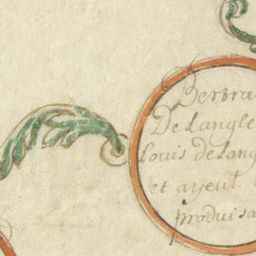 Bertra
De Langle
Louis de Lang
et ayeul
produisa